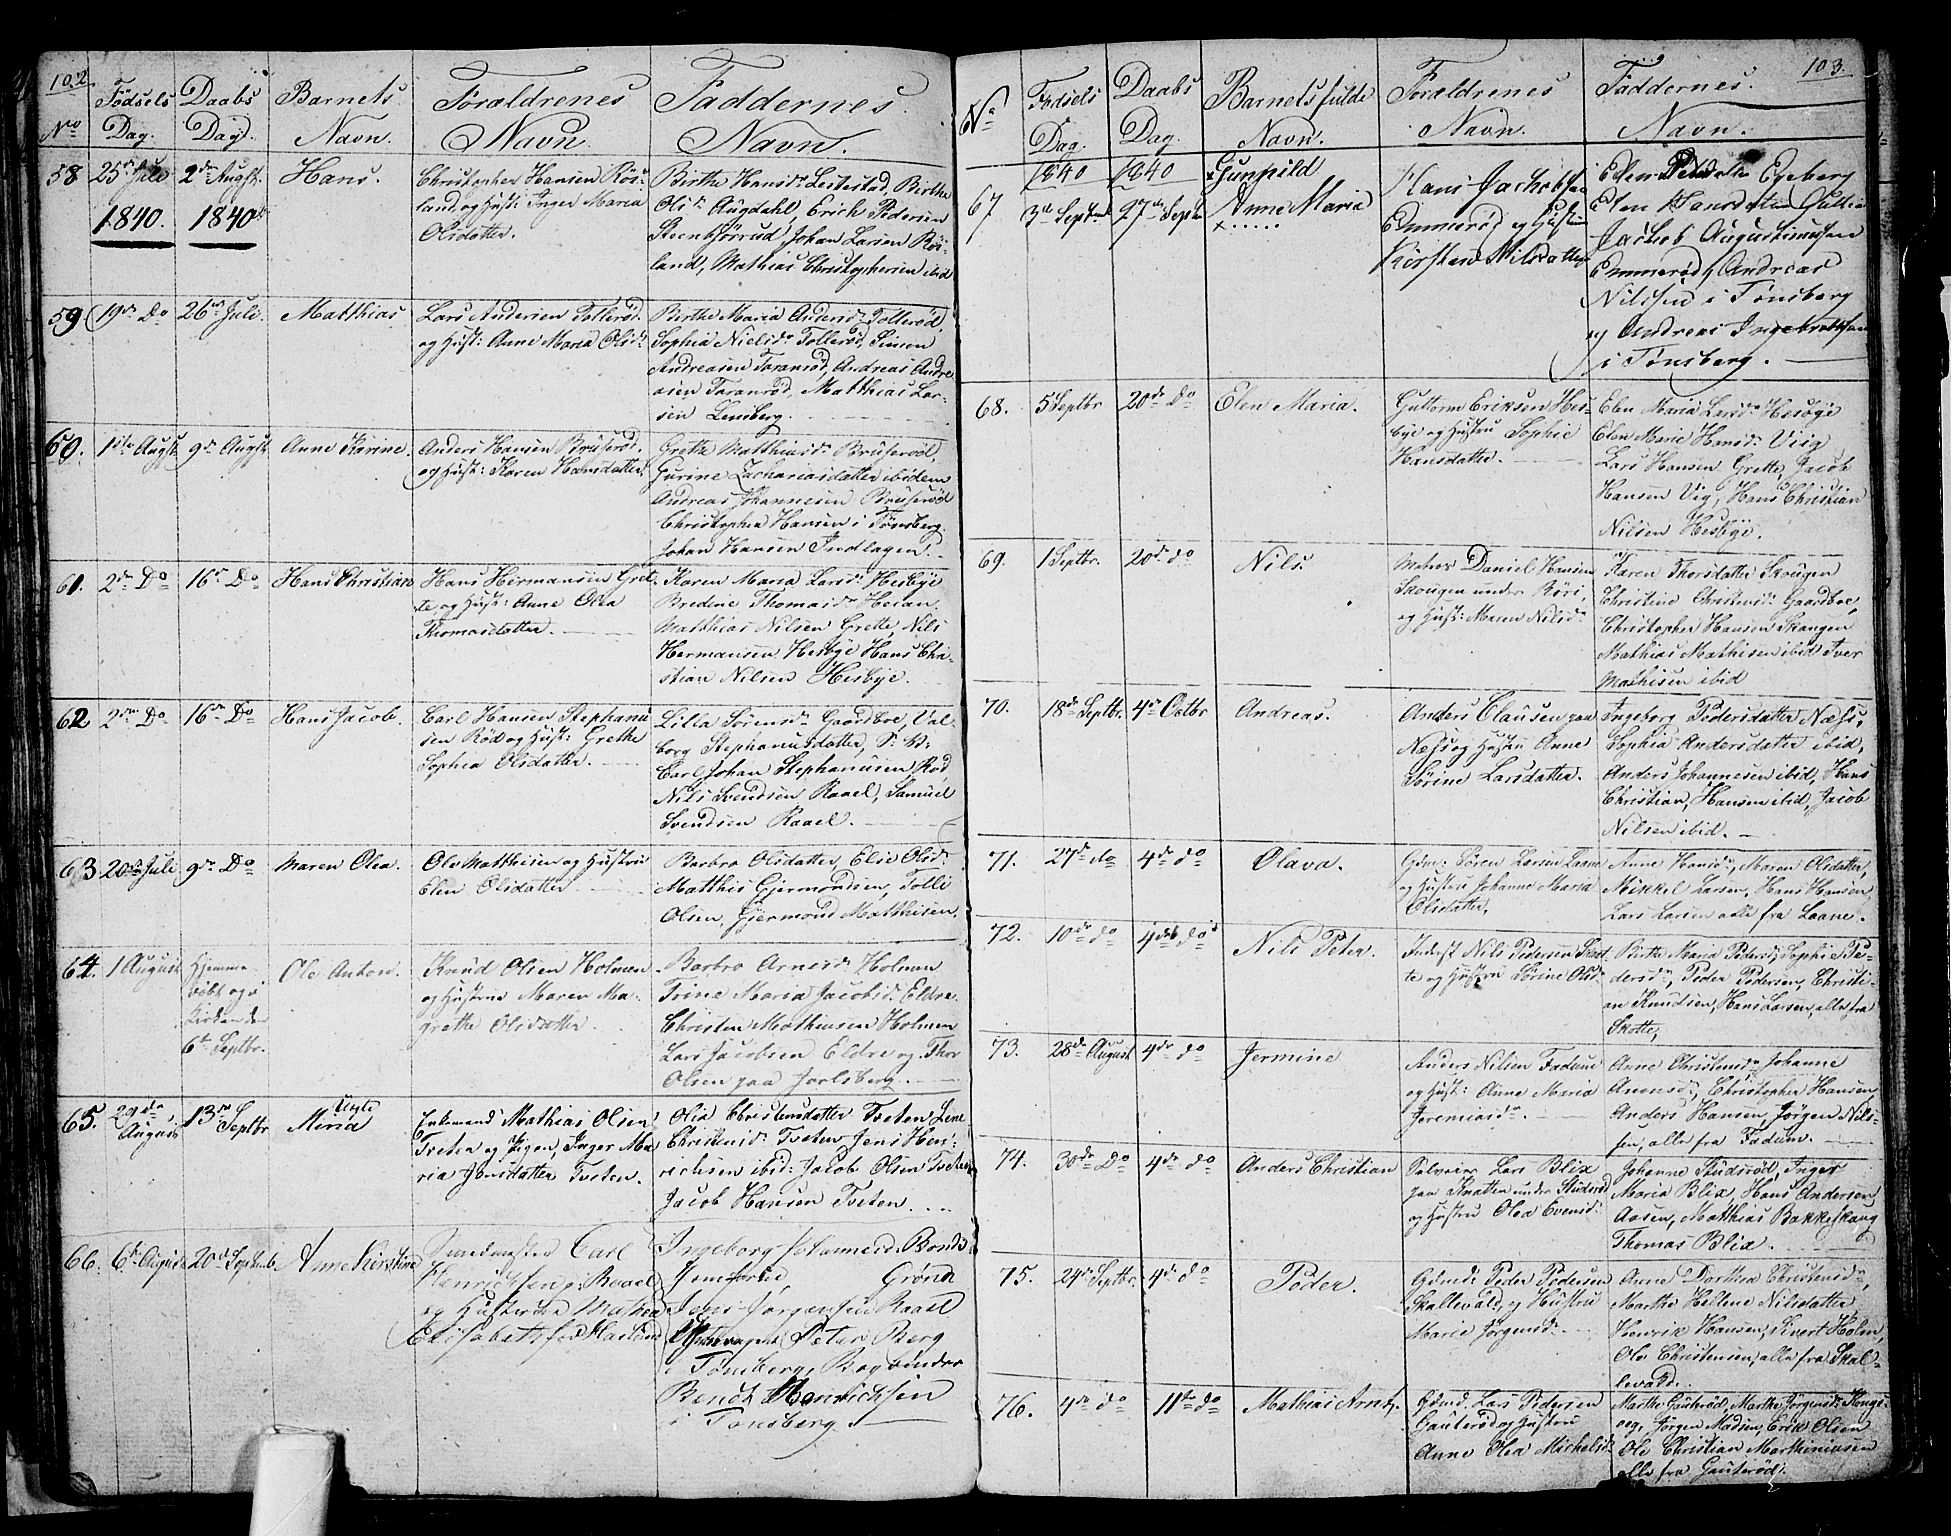 102
No
Fødsels
Dag.
Daabs
Dag.
Barnets
Navn.
Forældrenes
Navn.
Faddernes
Navn.
58
25de Juli
1840.
2den Augst.
1840
Hans.
Christopher Hansen Røs-
land og Hust: Inger Maria
Olsdatter.
Birthe Hansdr Leitestad, Birthe
Olsdr Augdahl, Erich Pedersen
Steenbjørrud, Johan Larsen Røs-
land, Mathias Christophersen ibid
59
19de Do
26de Juli.
Matthias
Lars Andersen Tollerød.
og Hust: Anne Maria Olsdr
Birthe Maria Andersdr Tollerød,
Sophia Nielsdr Tollerød, Simon
Andreasen Faranrød, Andreas Andre
asen Faranrød, Matthias Lar-
sen Lensberg.
60.
1ste Augst
9de Augst
Anne Karine.
Anders Hansen Bruserød.
og Hust: Karen Hansdatter.
Grethe Matthiasdr Bruserød,
Gurine Zachariasdatter ibidem
Andreas Johannesen Bruserød
Christopher Hansen i Tønsberg
Johan Hansen Indlagen.
61.
2de Do
16de Do
Hans Christian
Hans Hermansen Gret-
te og Hust: Anne Olea
Thomasdatter.
Karen Maria Larsdr Hesbye
Bredine Thomasdr Heian
Matthias Nilsen Grette, Nils
Hermansen Hesbye Hans Chri-
stian Nilsen Hesbye.
62
2den Do
16de Do
Hans Jacob.
Carl Hansen Stephanu
sen Rød og Hust: Grethe
Sophia Olsdatter.
Lilla Sørensdr Gaardboe, Val-
borg Stephanusdatter,
Carl Johan Stephanusen Rød,
Nils Svendsen Raael, Samuel
Svendsen Raael.
63
20de Juli
9de Do
Maren Olea
Ole Matthisen og Hustrue
Elen Olsdatter
Barbro Olsdatter, Elise Olsdr
Matthis Gjermondsen, Tolli
Olsen, Gjermond Matthisen.
64.
1 August
Hjemme
døbt og i
Kirken den
6te Septbr.
Ole Anton.
Knud Olsen Holmen
og Hustrue Maren Ma-
grethe Olsdatter
Barbro Arnesdr Holmen
Trine Maria Jacobsdr Eldre
Christen Mathiasen Holmen
Lars Jacobsen Eldre og Thor
Olsen paa Jarlsberg.
65.
29de
August
13de
Septbr
Uægte
Miria
Enkemand Mathias Olsen
Tveten og Pigen, Inger Ma
ria Jensdatter Tveten.
Olea Christensdatter Tveten, Lene
Christensdr Tveten Jens Hen-
richsen ibid: Jacob Olsen Tveten
Jacob Hansen Tveten.
66.
6te August
20de Septemb.
Anne Kirstine
Carl
Henrichsen i Raael
og Hustrue Mathea
Elisabeth
Ingeborg Johannesd.
Jomfrue, Grønd
Jens Jørgensen Raael
Peter Berg
i Tønsberg, Bogbinder
Bendt Henrichsen
i Tønsberg.
103
No
Fødsels
Dag.
1840
Daabs
Dag.
1840
Barnets fulde
Navn.
Forældrenes
Navn.
Faddernes
Navn.
67
3de Septemb
27de Septb
Gunhild
Anne Maria
Hans Jachobsen
Emmerød og Hustru
Kirsten Nilsdatter
Elen Pedersdatter Egeberg
Elen Hansdatter
Jachob Augustinussen
Emmerød, Andreas
Nilssen i Tønsberg
og Andreas Ingebretssen
i Tønsberg.
68.
5 Septbr
20de Do
Elen Maria.
Guttorm Eriksen Hes-
bye og Hustru Sophie
Hansdatter.
Elen Maria Larsdr Hesbye
Elen Marie Hansdr Vig
Lars Hansen Grette, Jacob
Hansen Vig, Hans Christian
Nilsen Hesbye.
69.
1 Septbr.
20de do
Nils
Matros Daniel Hansen
Skougen under Røri,
og Hust: Maren Nilsdr
Karen Thorsdatter Skougen
Christine Christensdr Gaardboe,
Christopher Hansen Skougen
Mathias Mathisen ibid Iver
Mathisen ibid
70.
18de Septbr.
4de Octbr
Andreas.
Anders Clausen paa
Næss og Hustru Anne
Sørine Larsdatter.
Ingeborg Pedersdatter Næss,
Sophia Andersdatter ibid,
Anders Johannesen ibid, Hans
Christian Hansen ibid, Jacob
Nilsen ibid.
71.
27de do
4de do
Olava.
Gdm: Søren Larsen Laane
og Hustru Johanne Maria
Olsdatter.
Anne Hansdr, Maren Olsdatter,
Mikkel Larsen, Hans Hansen
Lars Larsen alle fra Laane.
72.
10de do
4de do
Nils Peter.
Inderst Nils Pedersen Skot-
te og Hustru Sørine Olsdr
Birthe Maria Pedersdr, Sophie Pe-
dersdr, Peder Pedersen, Christi-
an Knudsen, Hans Larsen, alle fra
Skotte,
73.
28de August
4de do
Jermine
Anders Nilsen Fadum
og Hust: Anne Maria
Jeremiasdr
Anne Christensdr Johanne
Christopher Hansen
Anders Hansen, Jørgen Nils-
sen, alle fra Fadum.
74.
30de Do
4de do
Anders Christian
Lars Blix
paa Knatten under Studsrød
og Hustru Olea Evensdr
Johanne Studsrød, Inger
Maria Blix, Hans Andersen
Aasen, Matthias Bakkeskaug
Thomas Blix.
75.
24de Septbr.
4de do
Peder.
Gdmd: Peder Pedersen
Skallevald, og Hustru
Marie Jørgensdr
Anne Dorthea Christensdr
Marthe Hellene Nilsdatter
Henrik Hansen, Sivert Holm,
Ole Christensen, alle fra Skal-
levald.
76.
4de do
11te do
Mathias Arnt.
Gdmd. Lars Pedersen
Gauterød og Hustru
Anne Olea Michelsdr
Marthe Gauterød, Marthe Jørgensdr
Jørgen Madsen, Erik Olsen
Ole Christian Marthiniussen
alle fra Gauterød.